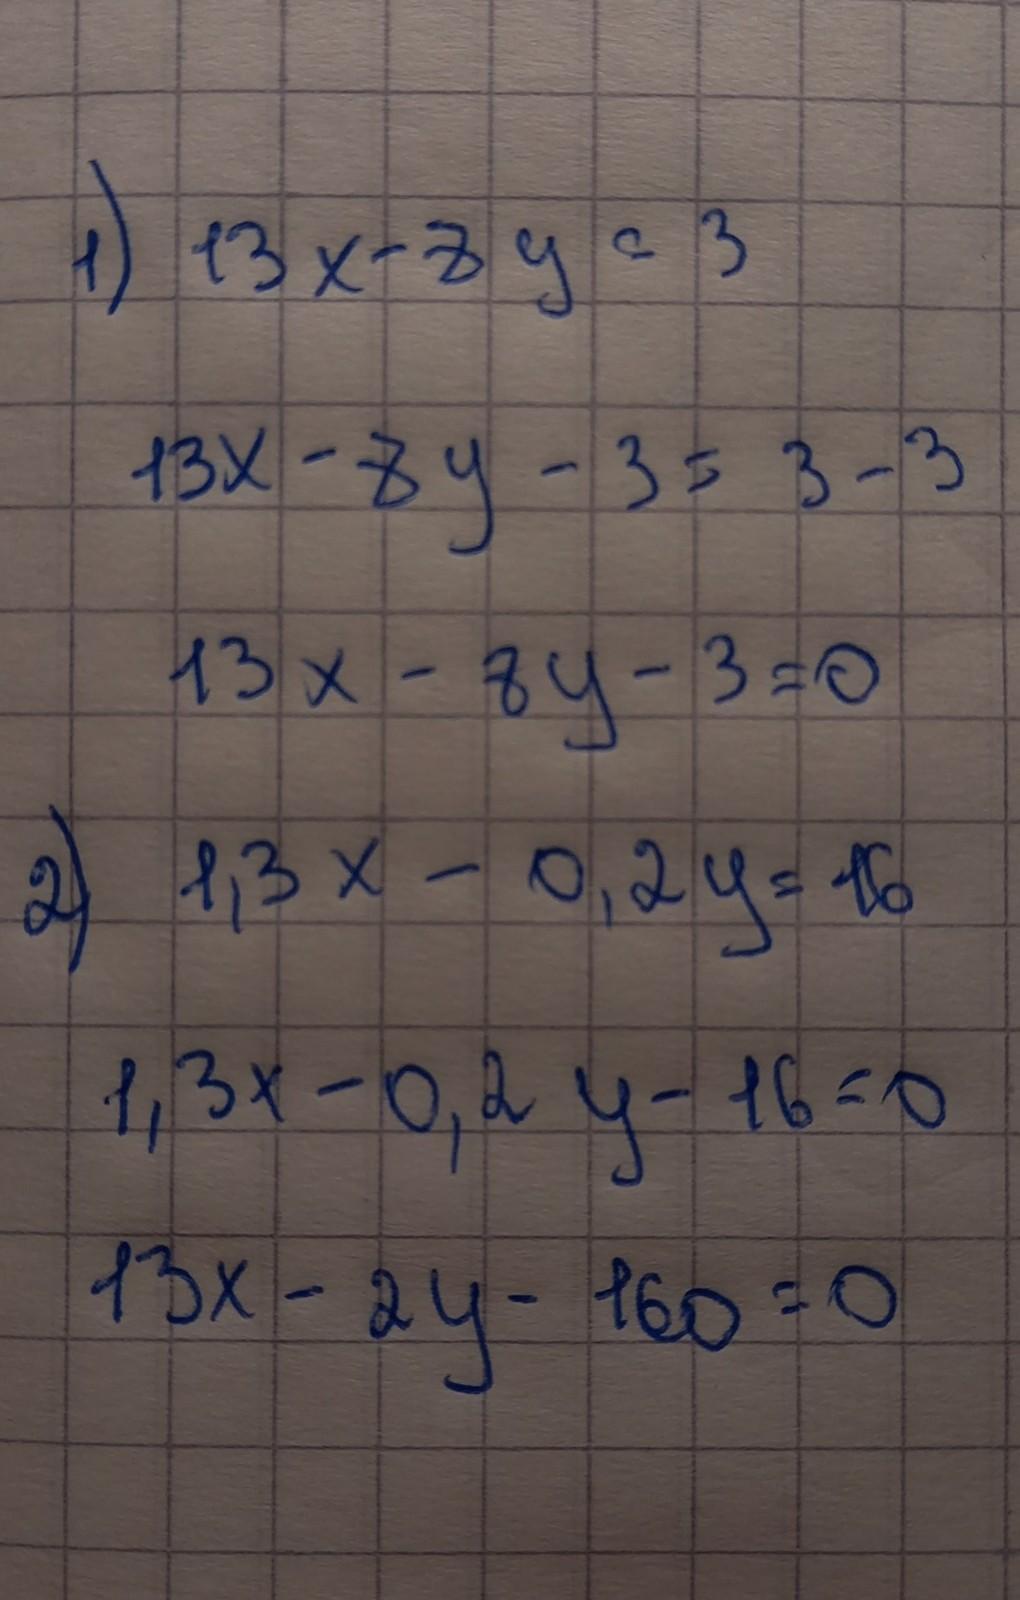 1) 13x - 8y = 3
13x - 8y - 3 = 3 - 3
13x - 8y - 3 = 0
2) 1,3x - 0,2y = 16
1,3x - 0,2y - 16 = 0
13x - 2y - 160 = 0